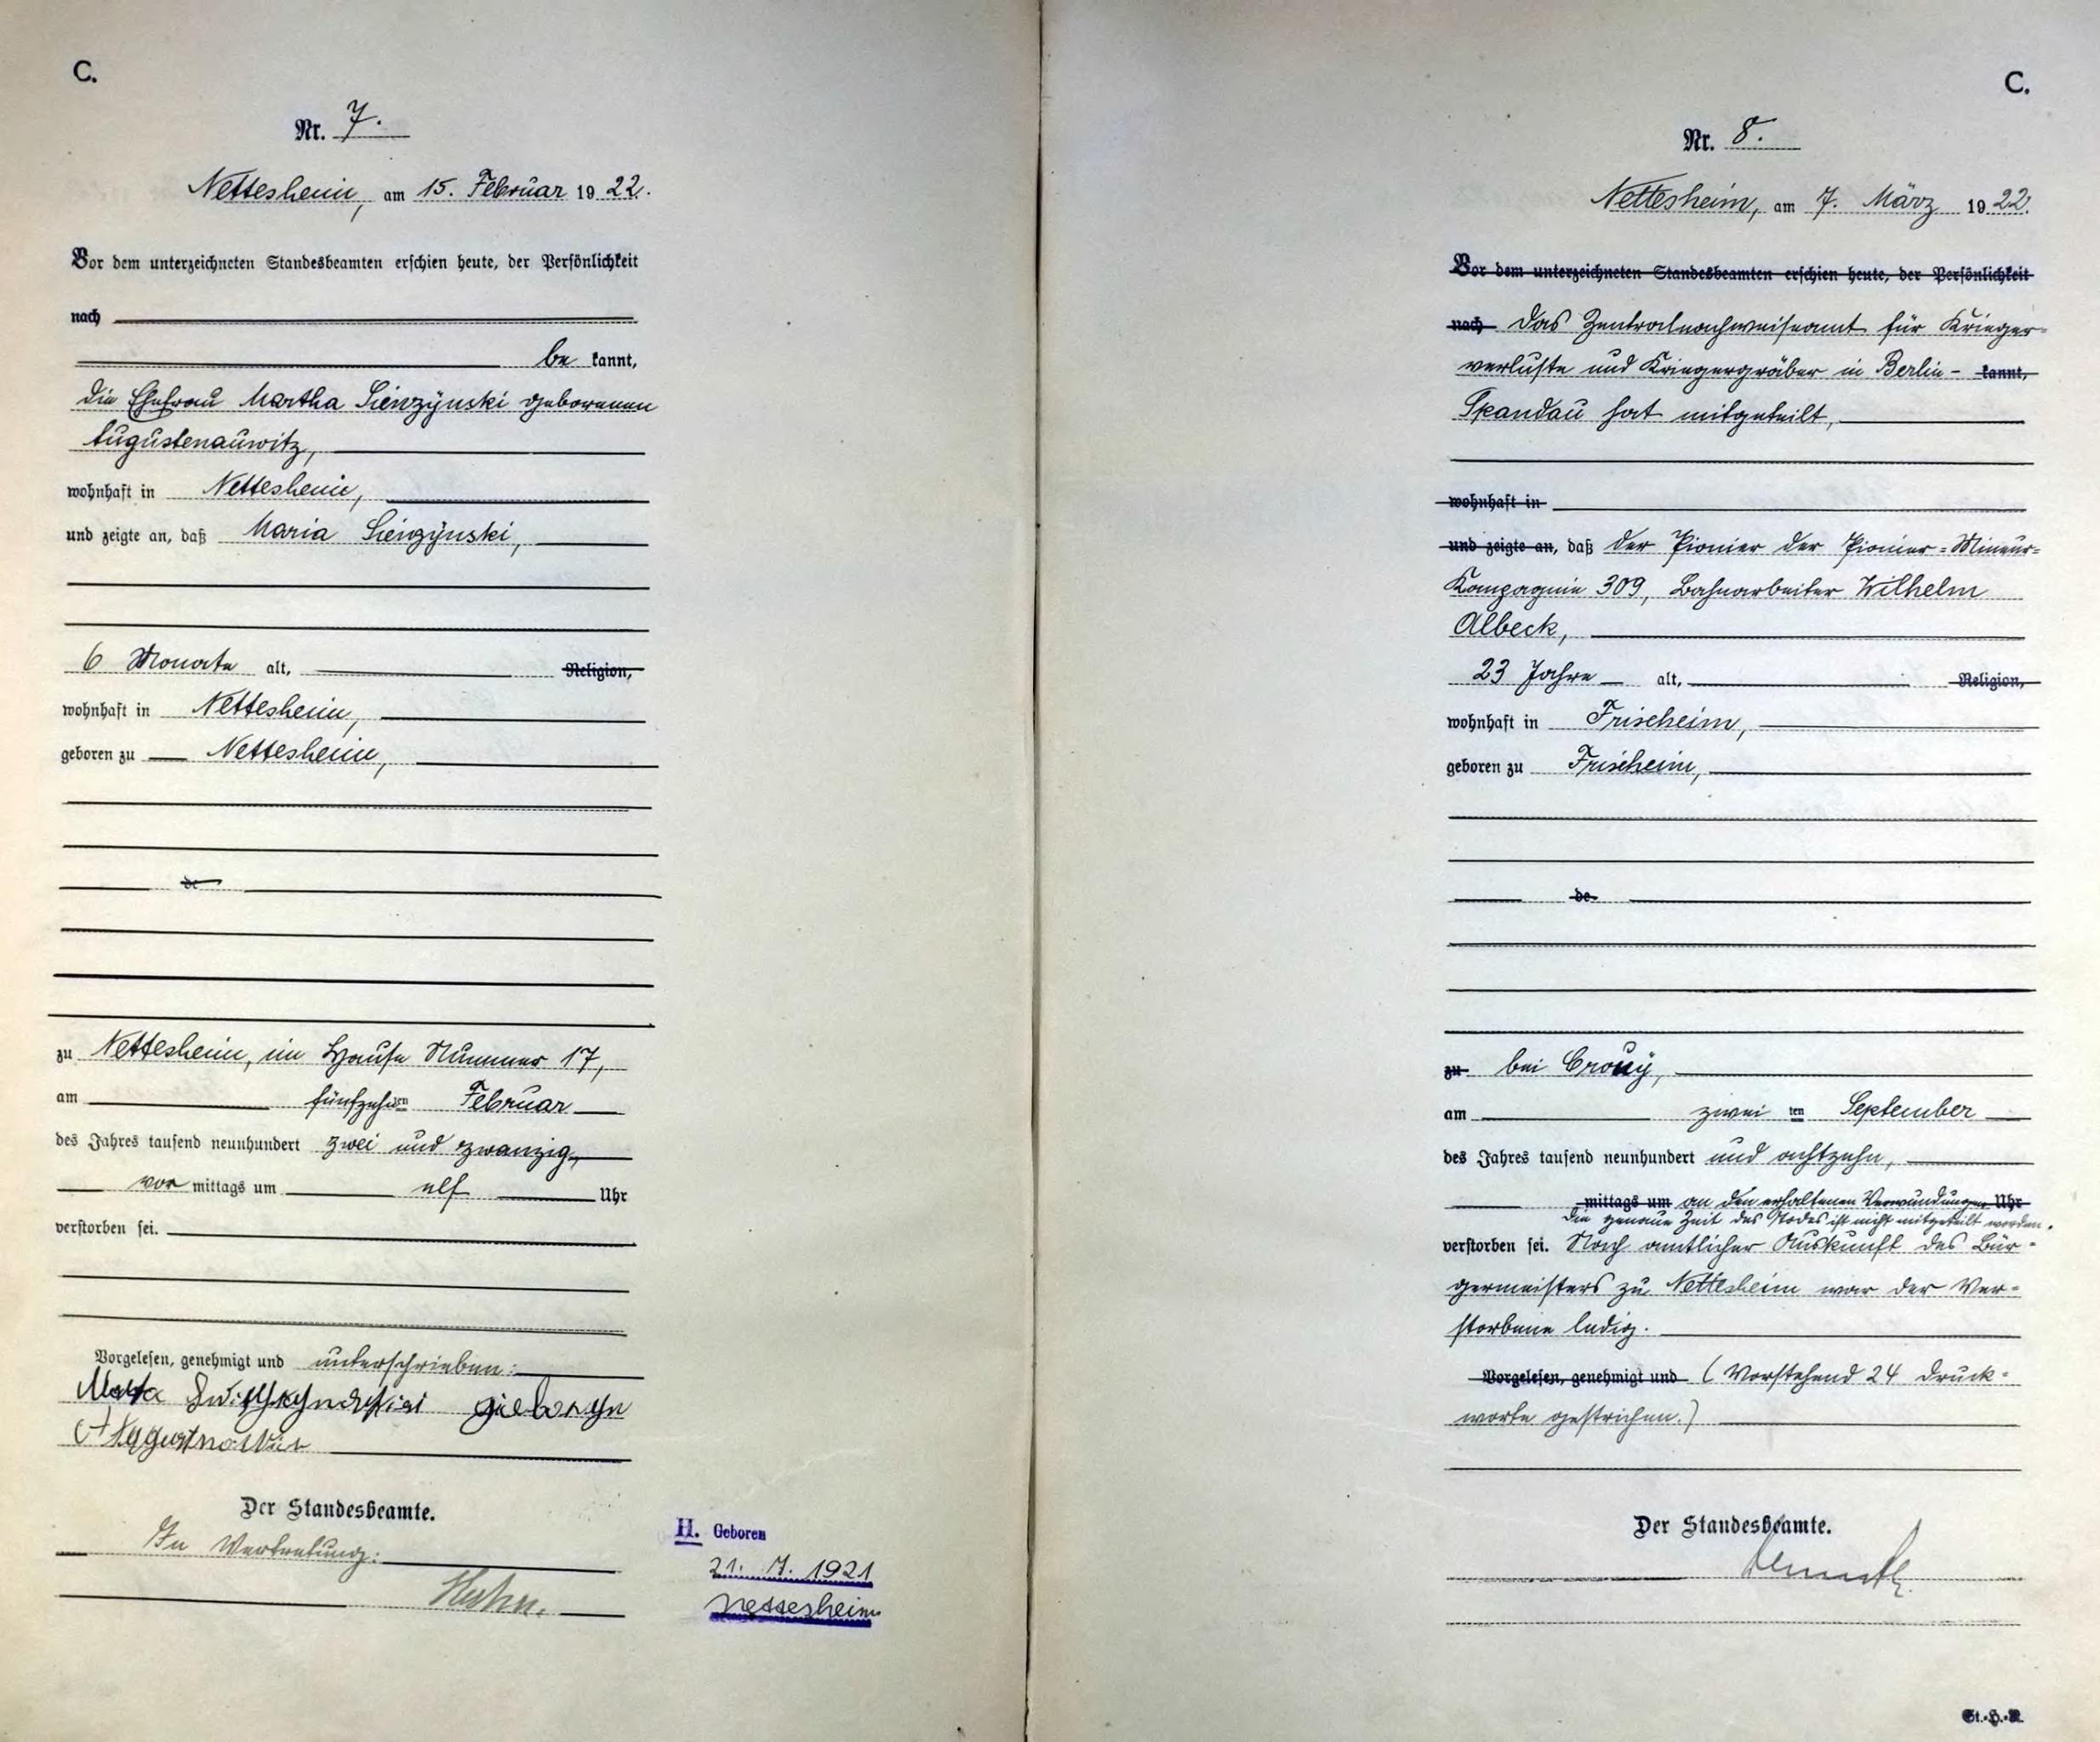 C.
Nr. 7.
Nettesheim, am 15. Februar 1922.
Vor dem unterzeichneten Standesbeamten erschien heute, der Persönlichkeit
nach
be kannt,
die Ehefrau Martha Sienzÿnski geborenen
Augustenauwitz,
wohnhaft in Nettesheim,
und zeigte an, daß Maria Sienzÿnski,
6 Monate alt, Religion,
wohnhaft in Nettesheim,
geboren zu Nettesheim,
de
zu Nettesheim, im Hause Nummer 17,
am fünfzehnten Februar
des Jahres tausend neunhundert zwei und zwanzig,
vor mittags um elf Uhr
verstorben sei.
Vorgelesen, genehmigt und unterschrieben:
Der Standesbeamte.
In Vertretung:
H. Geboren
21. 7. 1921
Nettesheim
C.
Nr. 8.
Nettesheim, am 7. März 1922.
Vor dem unterzeichneten Standesbeamten erschien heute, der Persönlichkeit
nach Das Zentralnachweiseamt für Krieger-
verluste und Kriegergräber in Berlin- kannt,
Spandau hat mitgeteilt,
wohnhaft in
und zeigte an, daß der Pionier der Pionier-Mineur-
Kompagnie 309, Bahnarbeiter Wilhelm
Albeck,
23 Jahre alt, Religion,
wohnhaft in Frixheim,
geboren zu Frixheim,
de
zu bei Crouÿ,
am zwei ten September
des Jahres tausend neunhundert und achtzehn,
mittags um an den erhaltenen Verwundungen Uhr
Die genaue Zeit des Todes ist nicht mitgeteilt worden.
verstorben sei. Nach amtlicher Auskunft des Bür-
germeisters zu Nettesheim war der Ver-
storbene ledig.
Vorgelesen, genehmigt und (Vorstehend 24 Druck-
worte gestrichen.)
Der Standesbeamte.
St.-H.-R.